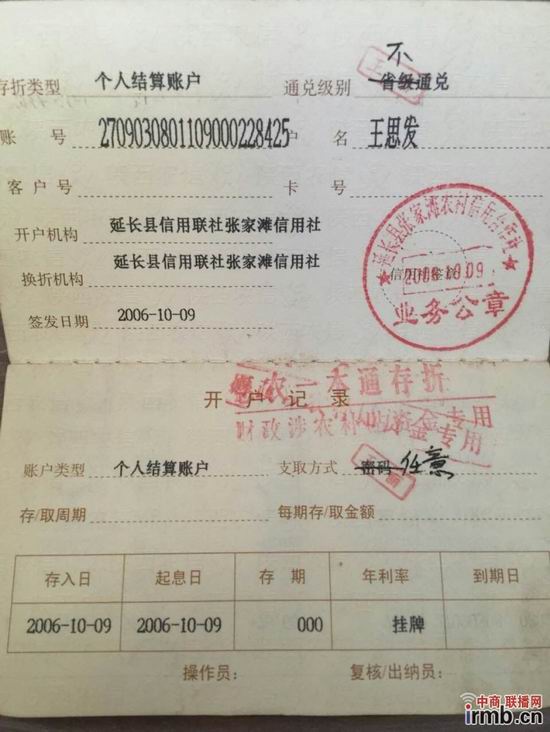 不
存折类型 个人结算账户 通兑级别 省级通兑
账 号 2709030801109000228425 户 名 王思发
客户号 卡 号
开户机构 延长县信用联社张家滩信用社
换折机构 延长县信用联社张家滩信用社
签发日期 2006-10-09
延长县张家滩农村信用合作社
2006.10.09
业务公章
农一本通存折
财政涉农补贴资金专用
开户记录
账户类型 个人结算账户 支取方式 密码 任意
存/取周期 每期存/取金额
存入日 起息日 存 期 年利率 到期日
2006-10-09 2006-10-09 000 挂牌
操作员： 复核/出纳员：
中商·联播网
irmb.cn